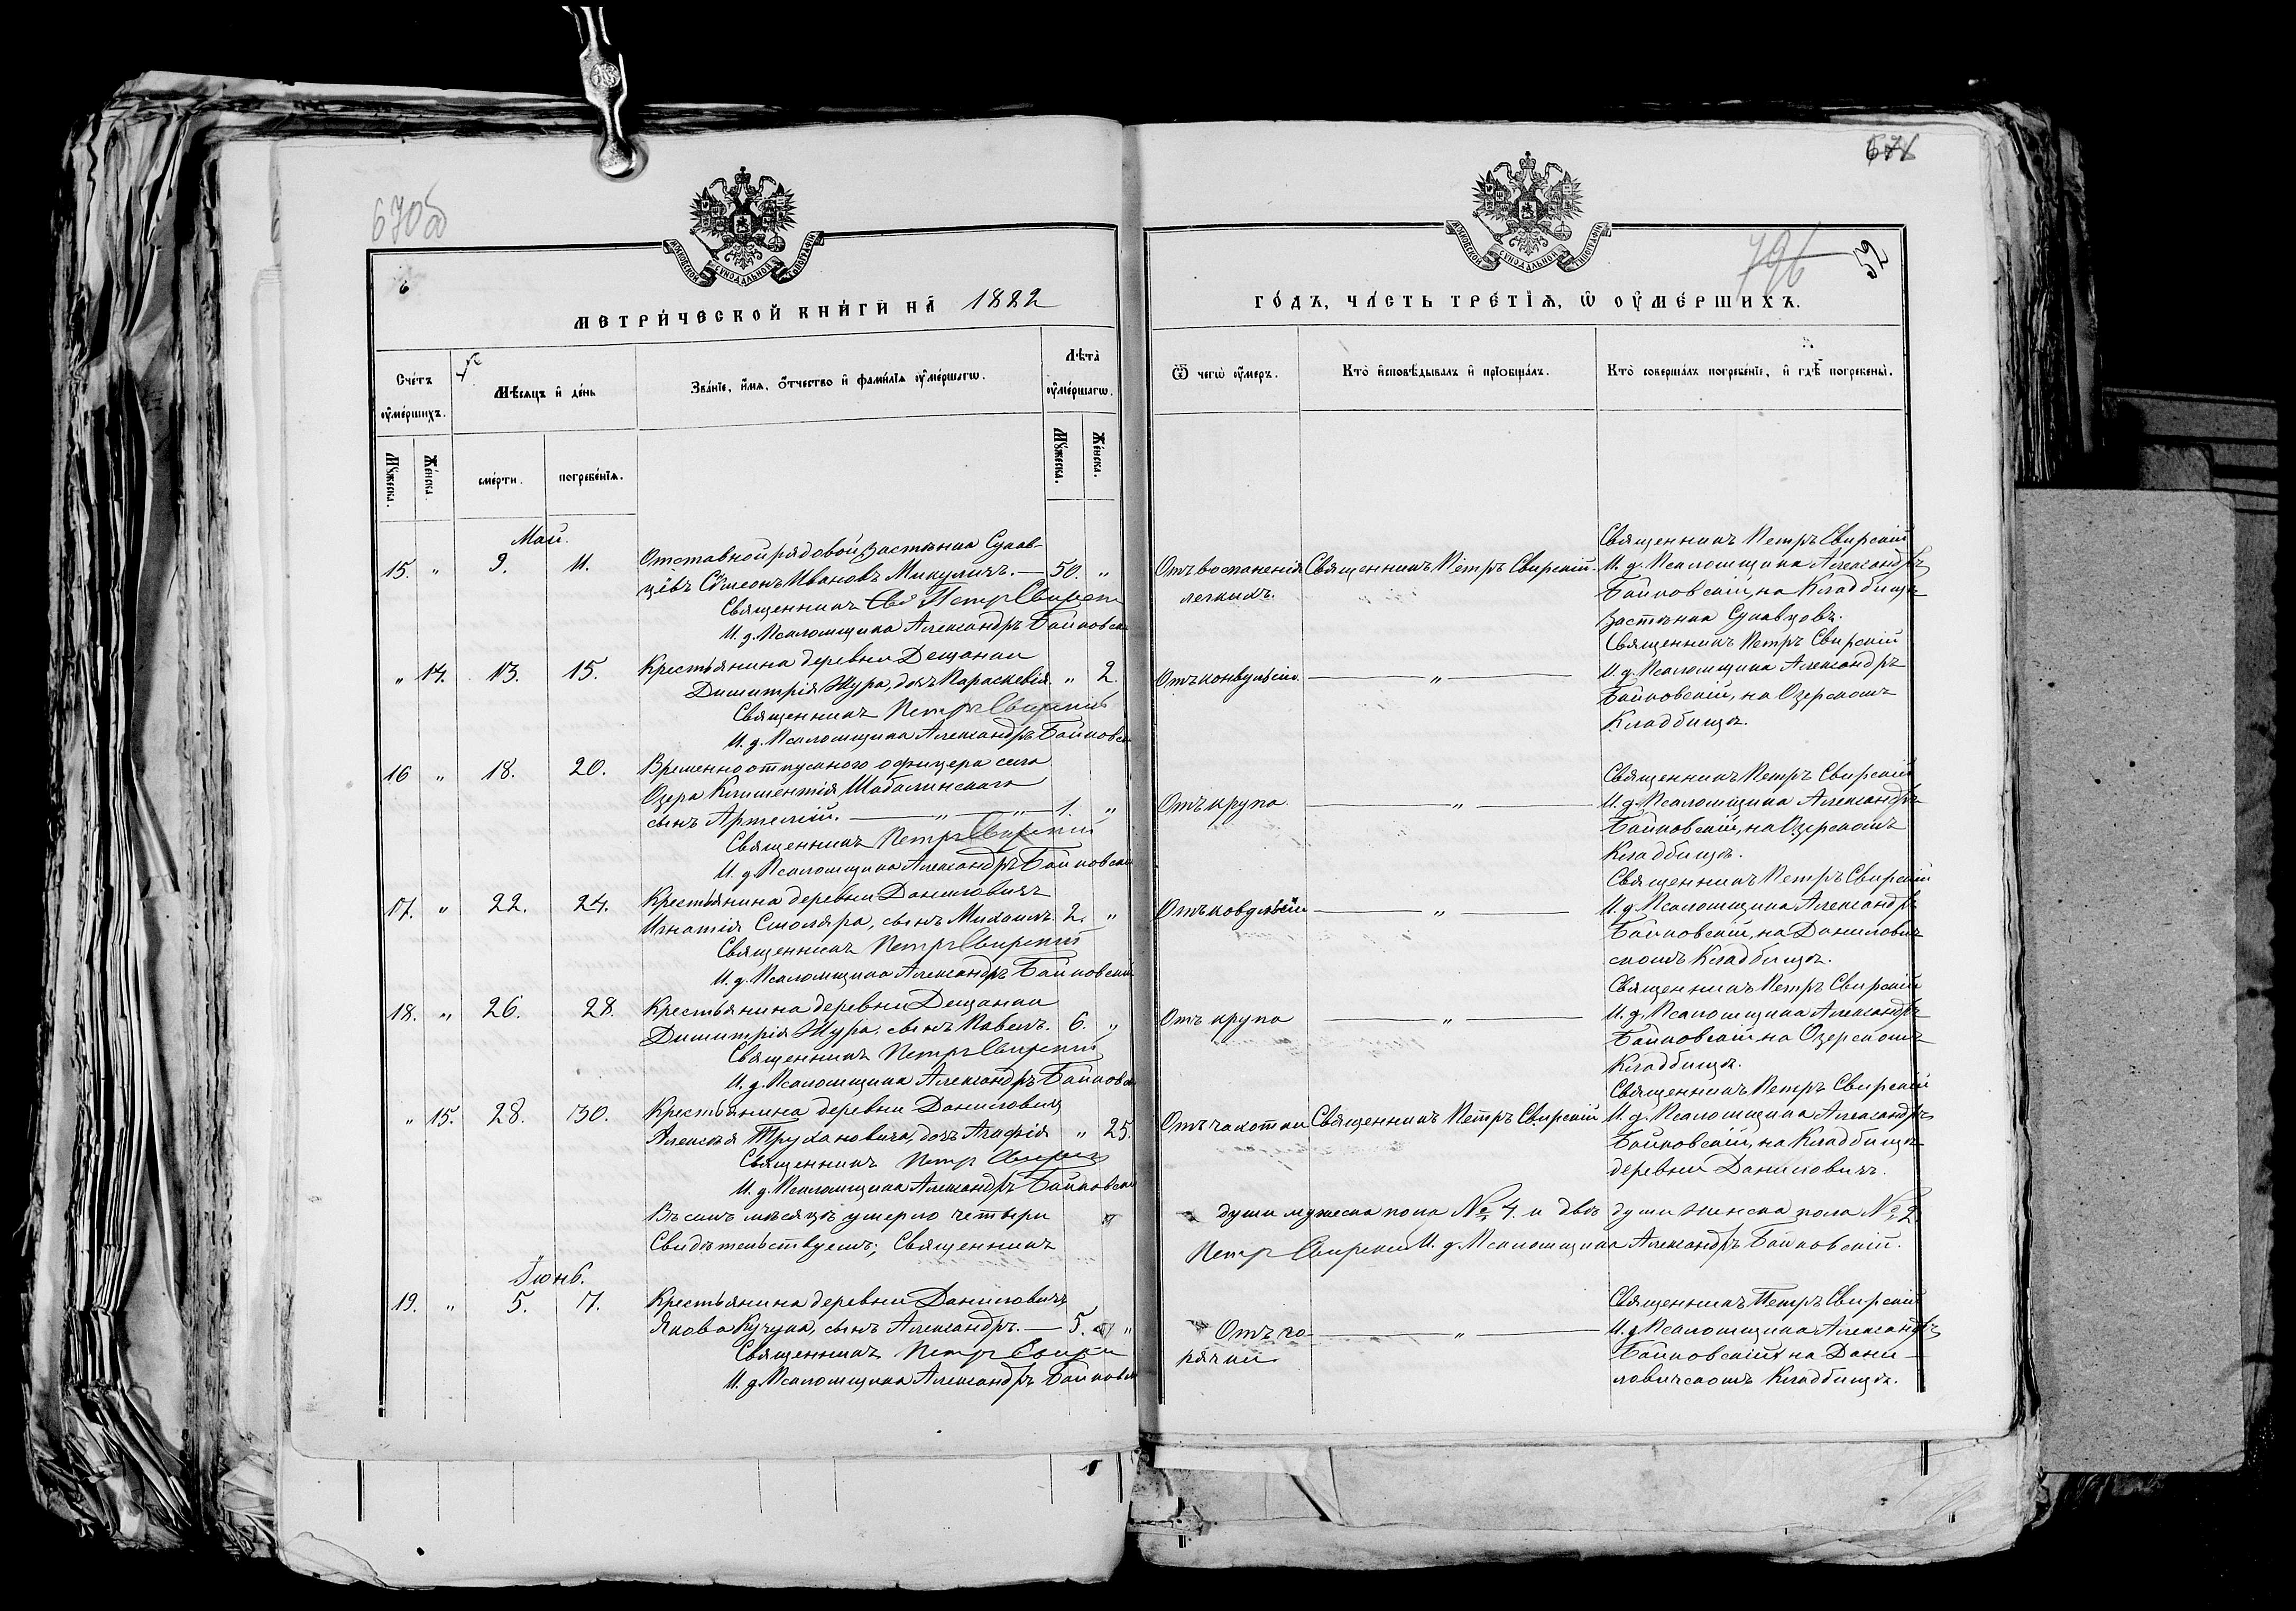 670об
671
МОСКОВСКОЙ СѴНОДАЛЬНОЙ ТИПОГРАФІИ
МОСКОВСКОЙ СѴНОДАЛЬНОЙ ТИПОГРАФІИ
796
52
МЕТРИ́ЧЕСКОЙ КНИ́ГИ НА̀ 1882
ГО́ДЪ, ЧА́СТЬ ТРЕ́ТІѦ, Ѡ ОУ҆МЕ́РШИХЪ.
Сче́тъ оу҆ме́ршихъ.
Мѣ́сѧцъ и҆ де́нь
Зва́нїе, и҆́мѧ, о҆́тчество и҆ фами́лїѧ оу҆ме́ршагѡ.
Лѣ́та̀ оу҆ме́ршагѡ.
Ѿ чегѡ̀ оу҆́меръ.
Кто̀ и҆сповѣ́дывалъ и҆ прїобща́лъ.
Кто̀ соверша́лъ погребе́нїе, и҆ гдѣ̀ погребены̀.
Мꙋ́жеска.
Же́нска.
сме́рти.
погребе́нїѧ.
Мꙋ́жеска.
Же́нска.
Май.
15. " 9. 11. Отставной рядовой, застѣнка Сулав-
цевъ Сѵмеонъ Ивановъ Микуличъ. — 50. "
Священникъ Петръ Свирскій
И. д. Псаломщика Александръ Байковскій
Отъ воспаленія
легкихъ.
Священникъ Петръ Свирскій.
Священникъ Петръ Свирскій
И. д. Псаломщика Александръ
Байковскій, на Кладбищѣ
застѣнка Сулавцовъ.
" 14. 13. 15. Крестьянина деревни Дещанки
Димитрія Жура, дочь Параскевія. " 2.
Священникъ Петръ Свирскій
И. д. Псаломщика Александръ Байковскій
Отъ конвульсіи. — " —
Священникъ Петръ Свирскій
И. д. Псаломщика Александръ
Байковскій, на Озерскомъ
Кладбищѣ.
16 " 18. 20. Временноотпускного офицера села
Озера Климентія Шабалинскаго
сынъ Артемій. — " — " — 1. "
Священникъ Петръ Свирскій
И. д. Псаломщика Александръ Байковскій
Отъ крупа. — " —
Священникъ Петръ Свирскій
И. д. Псаломщика Александръ
Байковскій, на Озерскомъ
Кладбищѣ.
17. " 22. 24. Крестьянина деревни Даниловичъ
Игнатія Смоляра, сынъ Михаилъ. 2. "
Священникъ Петръ Свирскій
И. д. Псаломщика Александръ Байковскій
Отъ ковдульсіи — " —
Священникъ Петръ Свирскій
И. д. Псаломщика Александръ
Байковскій, на Данилович
скомъ Кладбищѣ.
18. " 26. 28. Крестьянина деревни Дещанки
Димитрія Жура, сынъ Павелъ. 6. "
Священникъ Петръ Свирскій
И. д. Псаломщика Александръ Байковскій
Отъ крупа — " —
Священникъ Петръ Свирскій
И. д. Псаломщика Александръ
Байковскій на Озерскомъ
Кладбищѣ.
" 15. 28. 30. Крестьянина деревни Даниловичъ
Алексѣя Трухановича, дочь Агафія " 25.
Священникъ Петръ Свирскій
И. д. Псаломщика Александръ Байковскій
Отъ чахотки
Священникъ Петръ Свирскій
Священникъ Петръ Свирскій
И. д. Псаломщика Александръ
Байковскій, на Кладбищѣ
деревни Даниловичъ.
Въ семъ мѣсяцѣ умерло четыри души мужеска пола № 4. и двѣ души женска пола № 2
Свидѣтельствуемъ; Священникъ Петръ Свирскій И. д. Псаломщика Александръ Байковскій.
Іюнь.
19. " 5. 7. Крестьянина деревни Даниловичъ
Якова Кучука, сынъ Александръ. — 5. "
Священникъ Петръ Свирскій
И. д. Псаломщика Александръ Байковскій
Отъ го-
рячки — " —
Священникъ Петръ Свирскій
И. д. Псаломщика Александръ
Байковскій, на Дани-
ловичскомъ Кладбищѣ.